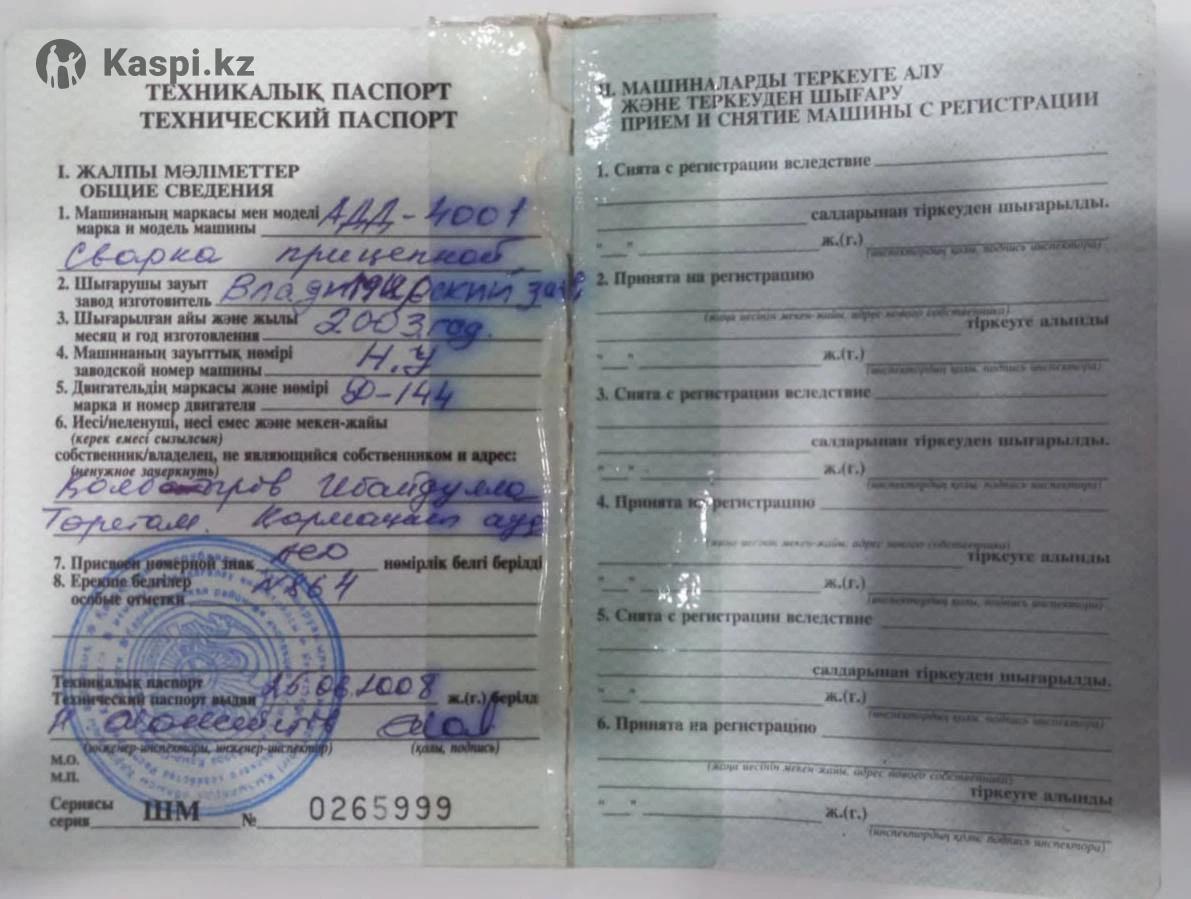 Kaspi.kz
ТЕХНИКАЛЫҚ ПАСПОРТ
ТЕХНИЧЕСКИЙ ПАСПОРТ
I. ЖАЛПЫ МӘЛІМЕТТЕР
ОБЩИЕ СВЕДЕНИЯ
1. Машинаның маркасы мен моделі АДД-4001
марка и модель машины
Сварка прицепной
2. Шығарушы зауыт
завод изготовитель
3. Шығарылған айы және жылы 2003 год.
месяц и год изготовления
4. Машинаның зауыттық нөмірі Н.У
заводской номер машины
5. Двигательдің маркасы және нөмірі Д-144
марка и номер двигателя
6. Иесі/иеленуші, иесі емес және мекен-жайы
(керек емесі сызылсын)
собственник/владелец, не являющийся собственником и адрес:
(ненужное зачеркнуть)
Төретам. Кармакшы ауд
7. Присвоен номерной знак нөмірлік белгі берілді
8. Ерекше белгілер
особые отметки
Техникалық паспорт
Технический паспорт выдан 25.06.2008 ж.(г.) берілд
(инженер-инспекторы, инженер-инспектор) (қолы, подпись)
М.О.
М.П.
Сериясы
серия ШМ № 0265999
II. МАШИНАЛАРДЫ ТЕРКЕУГЕ АЛУ
ЖӘНЕ ТЕРКЕУДЕН ШЫҒАРУ
ПРИЕМ И СНЯТИЕ МАШИНЫ С РЕГИСТРАЦИИ
1. Снята с регистрации вследствие
салдарынан тіркеуден шығарылды.
" " ж.(г.)
(инспектордың қолы, подпись инспектора)
2. Принята на регистрацию
(жаңа иесінің мекен-жайы, адрес нового собственника)
тіркеуге алынды
" " ж.(г.)
(инспектордың қолы, подпись инспектора)
3. Снята с регистрации вследствие
салдарынан тіркеуден шығарылды.
" " ж.(г.)
(инспектордың қолы, подпись инспектора)
4. Принята на регистрацию
(жаңа иесінің мекен-жайы, адрес нового собственника)
тіркеуге алынды
" " ж.(г.)
(инспектордың қолы, подпись инспектора)
5. Снята с регистрации вследствие
салдарынан тіркеуден шығарылды.
" " ж.(г.)
(инспектордың қолы, подпись инспектора)
6. Принята на регистрацию
(жаңа иесінің мекен-жайы, адрес нового собственника)
тіркеуге алынды
" " ж.(г.)
(инспектордың қолы, подпись инспектора)